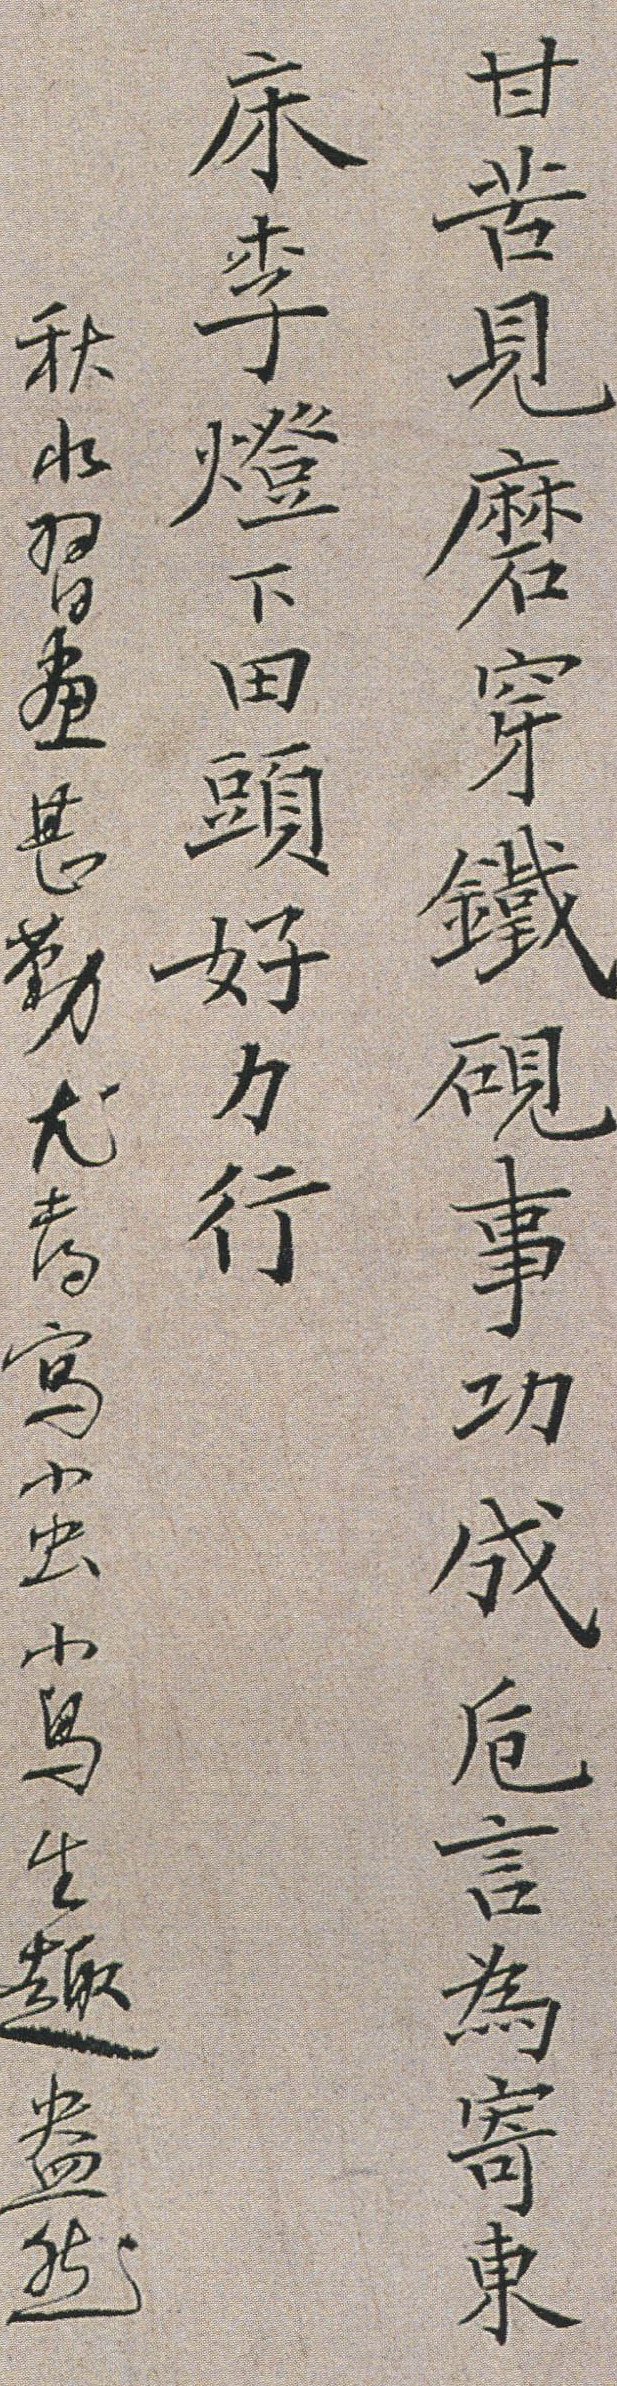 甘苦見磨穿鐵硯事功成卮言為寄東
床季燈下田頭好力行
秋水習畫甚勤尤喜寫小虫小鳥生趣盎然